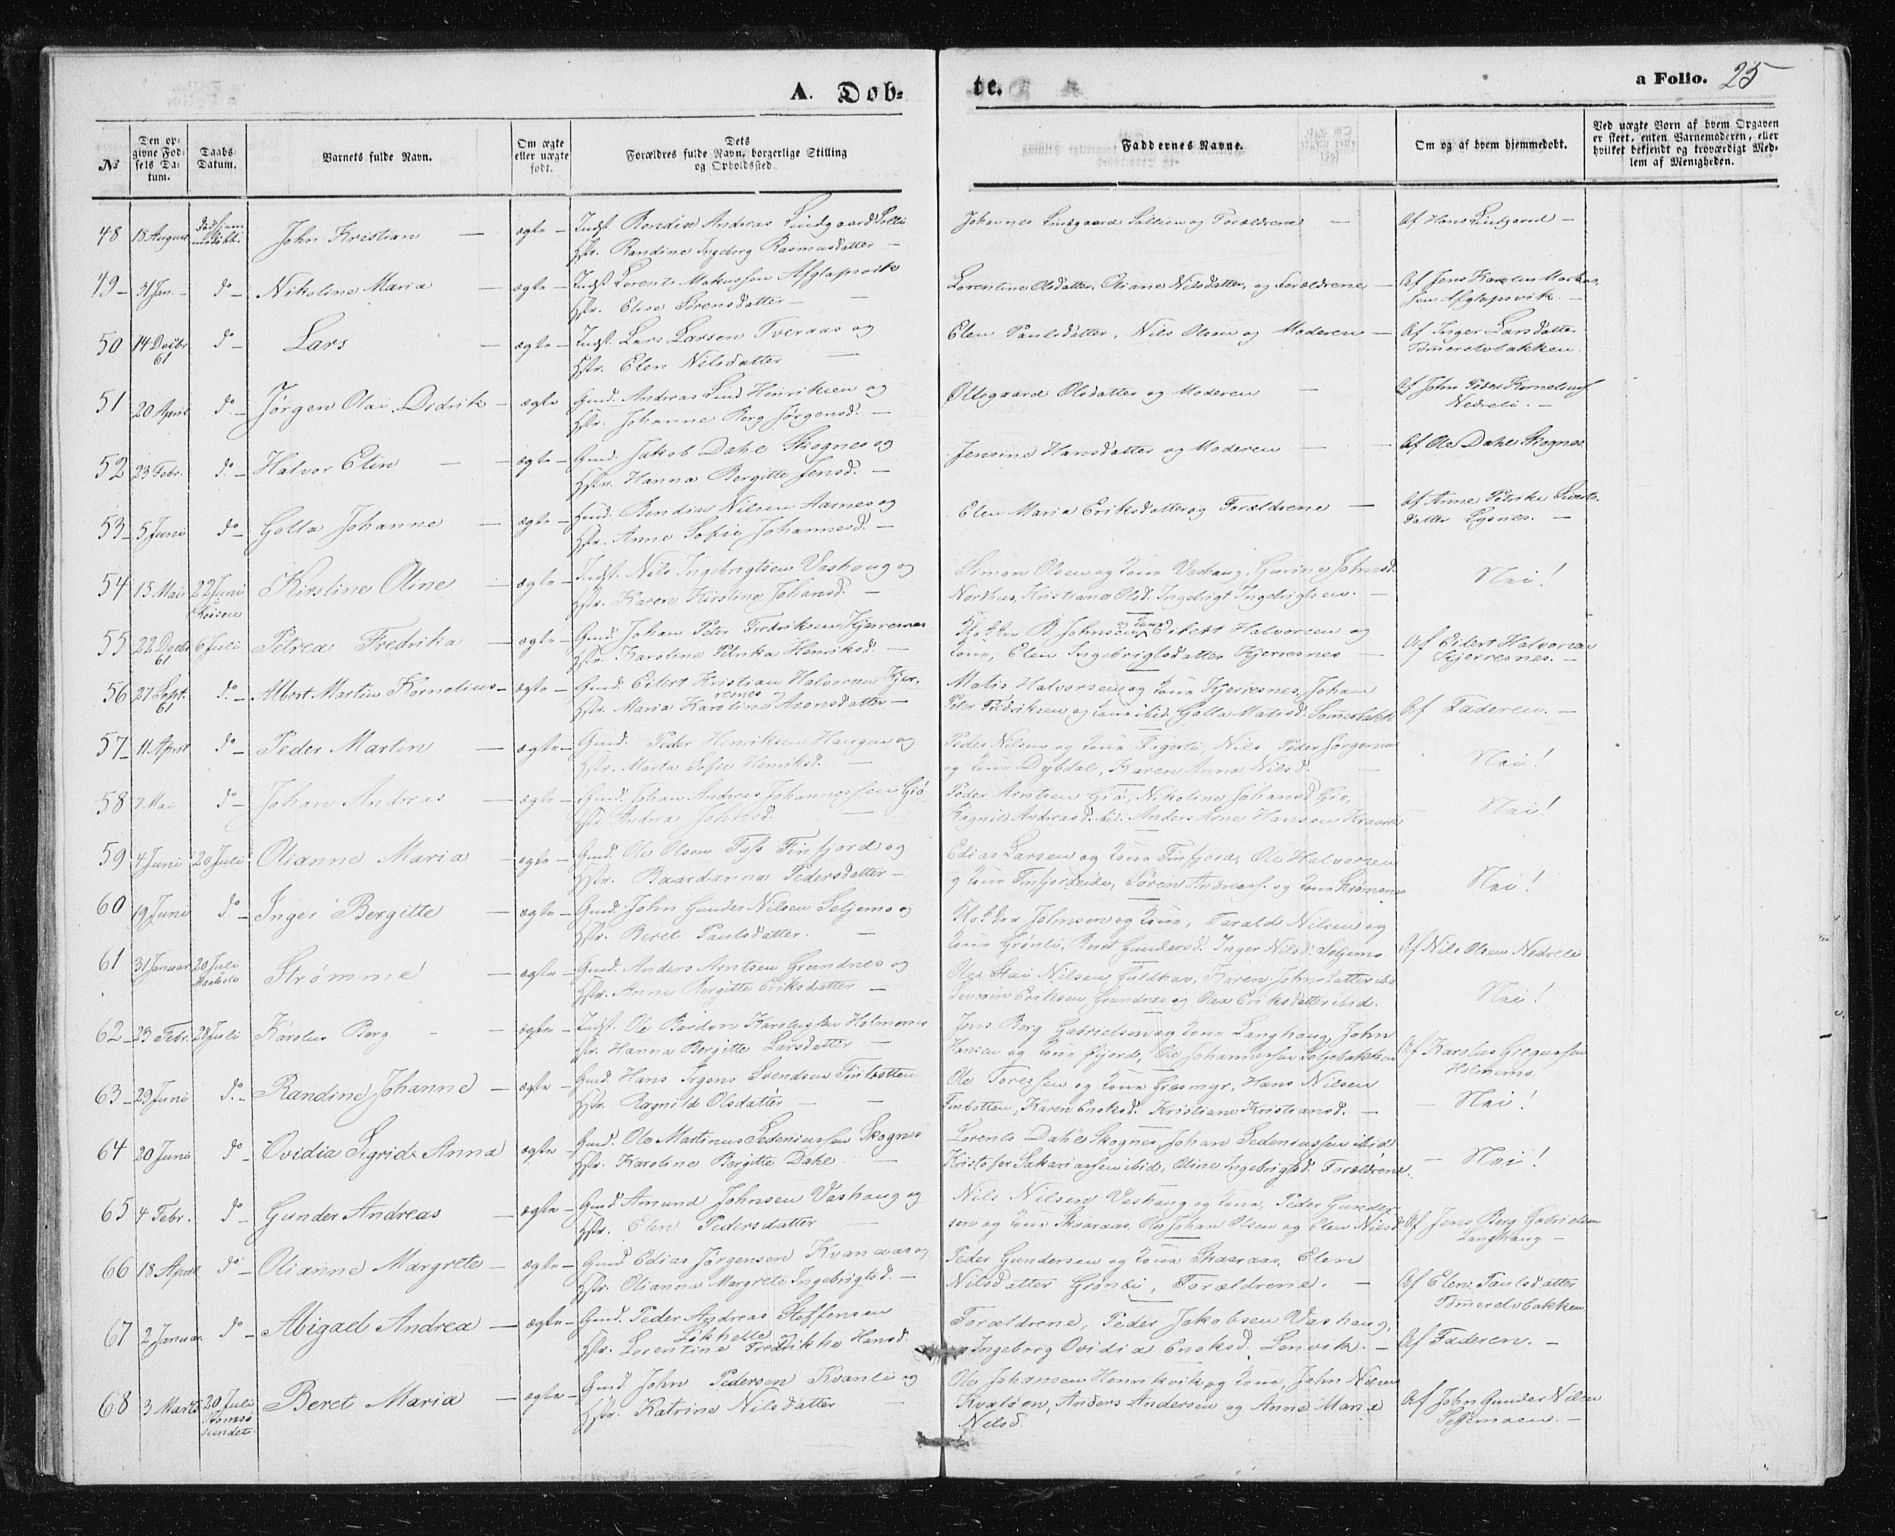 A. Døb-
te.
a Folio. 25
No
Den opgivne Fødsels Datum.
Daabs Datum.
Barnets fulde Navn.
Om ægte eller uægte født.
Dets Forældres fulde Navn, borgerlige Stilling og Opholdssted.
Faddernes Navne.
Om og af hvem hjemmedøbt.
Ved uægte Børn af hvem Opgaven er skeet, enten Barnemoderen, eller hvilket bekjendt og troværdigt Medlem af Menigheden.
48 18 August John Kristian — ægte — Indst Bendix Andreas Lindgaard
Hstr. Randine Ingeborg Rasmusdatter —
Johannes Lindgaard Sollien og Forældrene —
Af Hans Lindgaard —
49 — 31 Jan. — do — Nikoline Maria — ægte — Indst Lorents Makussen Afglapsvik
Hstr. Elise Sørensdatter —
Lorentine Olsdatter, Oliane Nilsdatter, og Forældrene —
Af Jens Karelius Markus-
sen Afglapsvik —
50 14 Decbr 61 do — Lars — ægte — Indst. Lars Larsen Tveraas og
Hstr. Elen Nilsdatter —
Elen Paulsdatter, Nils Olsen og Moderen —
Af Inger Larsdatter
Tømmeretvbakken
51 20 April do — Jørgen Olai Didrik — ægte — Gmd. Andreas Lind Henriksen og
Hstr. Johanne Berg Jørgensd. —
Ollegaard Olsdatter og Moderen —
Af John Peder Kornelius
Nedreli. —
52 23 Febr. do — Halvor Elin — ægte — Gmd. Jakob Dahl Skognes og
Hstr. Hanna Bergitte Jensd. —
Jensine Hansdatter og Moderen —
Af Ole Dahl Skognes
53 — 5 Juni do — Golla Johanne — ægte — Gmd. Bendix Nilsen Aarnes og
Hstr. Anne Sofie Johannesd. —
Elen Maria Eriksdatter og Forældrene —
Af Anne Petrike Siverts-
datter Lysnes. —
54 15 Mai 22 Juni Kirstine Oline — ægte — Indst. Nils Ingebrigtsen Vashaug og
Hstr. Karen Kirstine Johansd. —
Simon Olsen og Kone Vashaug, Gurine Johnsd.
Nordhus, Kristiane Olsd. Ingebrigt Ingebrigtsen. —
Nei!
55 22 Decbr 61 6 Juli Petrea Fredrika — ægte — Gmd. Johan Peter Fredriksen Kjerresnes
Hstr. Karoline Petrika Henriksd. —
Klokker B Johnsen, Eilert Halvorsen og
Kone, Elen Ingebrigtsdatter Kjerresnes —
Af Eilert Halvorsen
Kjerresnes. —
56 27 Sept. 61 do — Albert Martin Kornelius — ægte — Gmd. Eilert Kristian Halvorsen Kjer-
resnes og
Hstr. Maria Karoline Aronsdatter —
Matis Halvorsen og Kone Kjerresnes, Johan
Peter Fredriksen og Kone ibid. Golla Matisd.
Af Faderen. —
57 — 11 April do — Peder Martin — ægte — Gmd. Peder Henriksen Haugen og
Hstr. Marta Sofie Henriksd. —
Peder Nilsen og Kone Fagerli, Niels Peder Jørgensen
og Kone Dybdal, Karen Anna Nilsd. —
Nei!
58 7 Mai do — Johan Andreas — ægte — Gmd. Johan Andreas Johannessen Giø
Hstr. Andrea
Peder Arntsen Giø, Nikoline Johansd Giø,
Ragnild Andreasd. ibid. Anders Arne Hansen
— Nei!
59 4 Juni 20 Juli Olianne Maria — ægte — Gmd. Ole Olsen Foss Finfjord og
Hstr. Baardanna Pedersdatter —
Edias Larsen og Kone Finfjord, Ole Halvorsen
og Kone Finfjordeide, Søren Andreass. og Kone
Nei!
60 19 Juni do — Inger Bergitte — ægte — Gmd. John Gunder Nilsen Seljemo og
Hstr. Beret Paulsdatter. —
Klokker Johnsen og Kone, Farald Nilsen og
Kone Grønli, Beret Gundersd. Inger Nilsd. Seljemo
Af Nils Olsen Nedreli
61 31 Januar 20 Juli Strømme — ægte — Gmd. Anders Arntsen Grundnes og
Hstr. Anne Bergitte Eriksdatter —
Ole Nilsen Guldhav, Karen Johnsdatter ibid
Severin Eriksen Grundnes og Olea Eriksdatter ibid.
Nei!
62 — 23 Febr. 28 Juli Karolus Berg — ægte — Indst. Ole Bardon Karolussen Holmenes
Hstr. Hanna Bergitte Larsdatter —
Jens Berg Gabrielsen og Kone Langhaug, John
Hansen og Kone Øijord, Ole Johannessen
Af Karolus Gregussen
Holmenes.
63 — 29 Juni do — Randine Johanne — ægte — Gmd. Hans Irgens Svendsen Finbotten
Hstr. Ragnild Olsdatter —
Ole Toressen og Kone Græsmyr, Hans Nilsen
Finbotten, Karen Enoksd. Kristiane Kristiansd. —
— Nei!
64 20 Juni do — Ovidia Sigrid Anna ægte — Gmd. Ole Martinus Sedeniussen Skognes
Hstr. Karoline Bergitte Dahl —
Lorents Dahl Skognes, Johan Sedeniussen ibid
Kristofer Sakariassen ibid, Oline Ingebrigtsd. Forældrene
— Nei!
65 4 Febr. do — Gunder Andreas — ægte — Gmd. Amund Johnsen Vashaug og
Hstr. Elen Pedersdatter —
Nils Nilsen Vashaug og Kone, Peder Gunder-
sen og Kone Skaaraas, Ole Johan Olsen og Elen Nilsd
Af Jens Berg Gabrielsen
Langhaug —
66 18 April do — Olianne Margrete — ægte — Gmd Edias Jørgensen Kvanaas og
Hstr. Olianna Margrete Ingebrigtsd. —
Peder Gundersen og Kone Skaaraas, Elen
Nilsdatter Grønli, Forældrene. —
Af Elen Paulsdatter
Tømmeretvbakken
67 2 Januar do — Abigael Andrea — ægte — Gmd. Peder Andreas Steffensen
Likhelle
Hstr. Lorentine Fredrikke Hansd.
Forældrene, Peder Jakobsen Vashaug,
Ingeborg Ovidia Enoksd. Lenvik. —
Af Faderen. —
68 3 Marts 20 Juli Beret Maria — ægte — Gmd John Pedersen Kvanli og
Hstr. Katrine Nilsdatter —
Ole Johansen Henrikvik og Kone, John Nilsen
Kvaløen, Anders Andersen og Anne Marie
Nilsd.
Af John Gunder Nilsen
Seljemoen. —